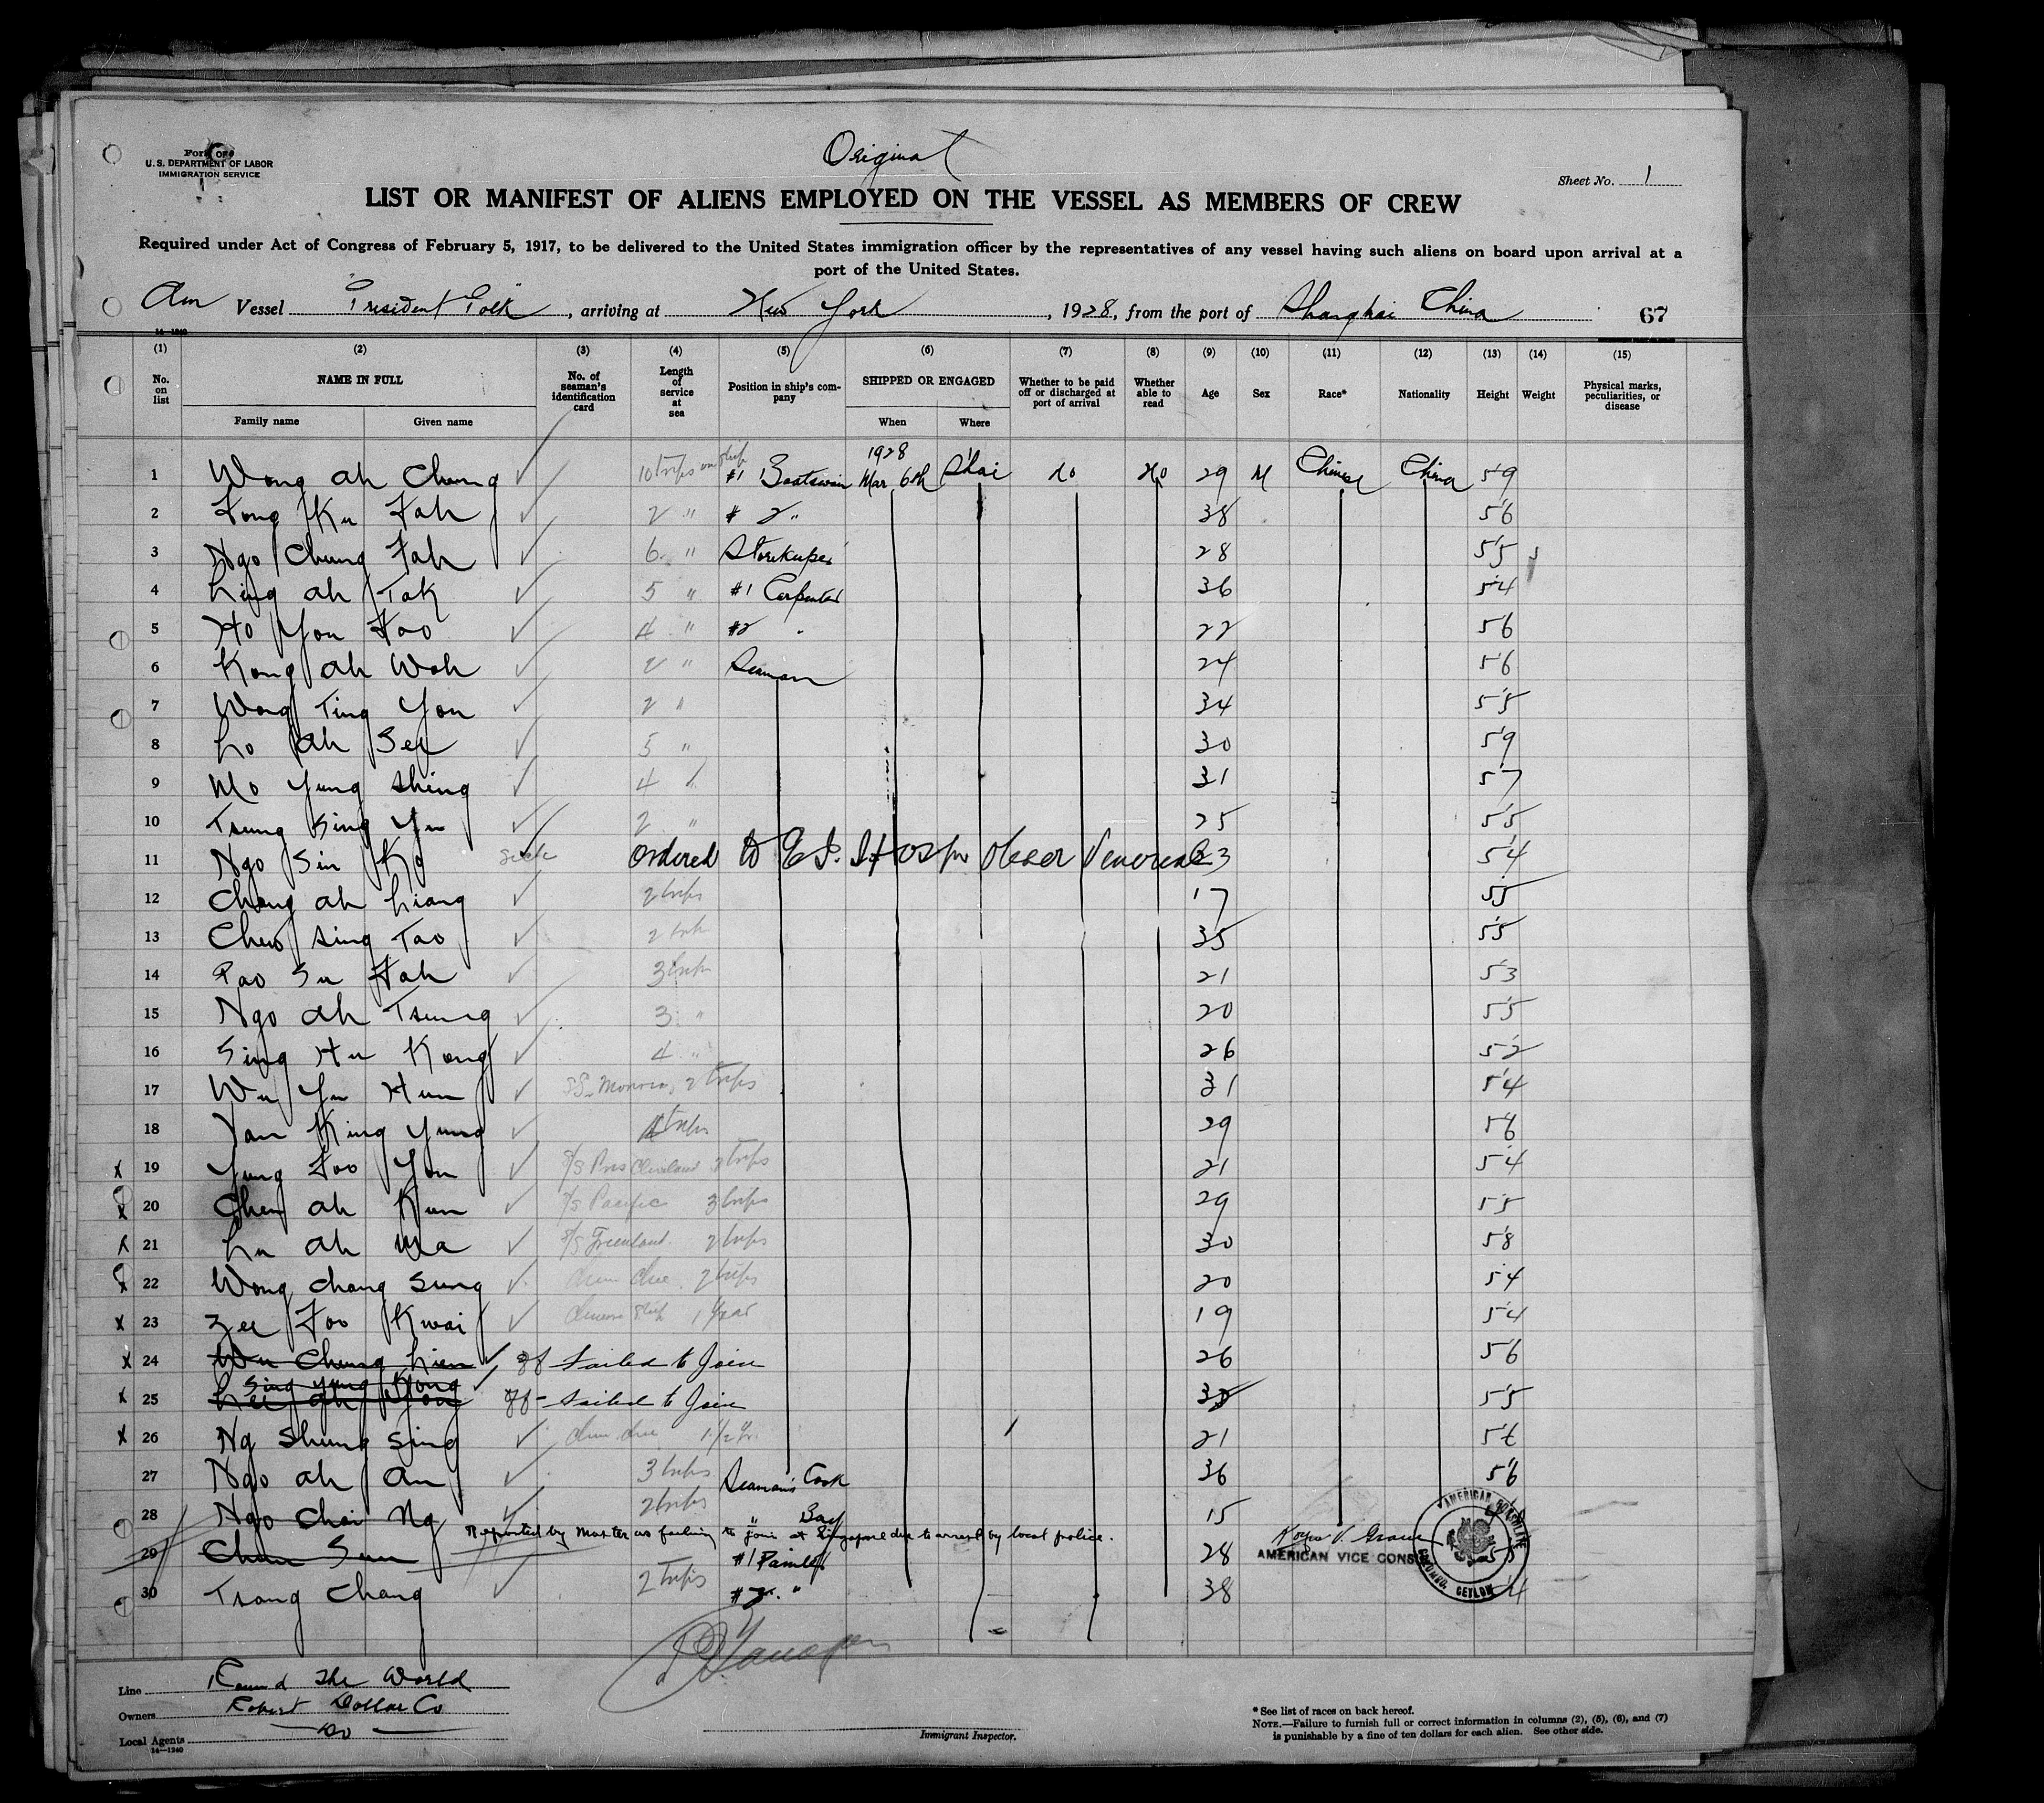 Original
U.S. DEPARTMENT OF LABOR
IMMIGRATION SERVICE
Sheet No. 1
LIST OR MANIFEST OF ALIENS EMPLOYED ON THE VESSEL AS MEMBERS OF CREW
Required under Act of Congress of February 5, 1917, to be delivered to the United States immigration officer by the representatives of any vessel having such aliens on board upon arrival at a
port of the United States.
Am Vessel President Polk, arriving at New York, 1928, from the port of Shanghai China 67
14—1240
(1) (2) (3) (4) (5) (6) (7) (8) (9) (10) (11) (12) (13) (14) (15)
No. on list NAME IN FULL Family name Given name No. of seaman's identification card Length of service at sea Position in ship's company SHIPPED OR ENGAGED When Where Whether to be paid off or discharged at port of arrival Whether able to read Age Sex Race* Nationality Height Weight Physical marks, peculiarities, or disease
1 Wong ah Chung 10 trips on ship #1 Boatswain 1928 Mar 6th S'hai No No 29 M Chinese China 5'9
2 Fong Ku Fah 2 " # 2 " 38 5'6
3 Ngo Chung Fah 6 " Storekeeper 28 5'5
4 Ling ah Tak 5 " #1 Carpenter 36 5'4
5 Ho You Foo 4 " #2 " 22 5'6
6 Kong ah Woh 2 " Seaman 24 5'6
7 Wong Ting You 2 " 34 5'5
8 Lo ah Sey 5 " 30 5'9
9 Mo Yung Shing 4 " 31 5'7
10 Tsung King Yu 2 " 25 5'5
11 Ngo Sin Ko ordered to E.I. Hosp obser Venereal 23 5'4
12 Chang ah Liang 2 trips 17 5'5
13 Chew Sing Tao 2 trips 35 5'5
14 Pao Su Fah 3 trips 21 5'3
15 Ngo ah Tsung 3 " 20 5'5
16 Sing Hu Kong 4 " 26 5'2
17 Wu Yu Hun SS Monroe, 2 trips 31 5'4
18 Yan King Yung trips 29 5'6
x 19 Yung Foo You S/S Pres Cleveland 3 trips 21 5'4
x 20 Chen ah Kun S/S Pacific 3 trips 29 5'5
x 21 Lu ah Wa S/S 2 trips 30 5'8
x 22 Wong Chang Sung 2 trips 20 5'4
x 23 Zee Foo Kwai 1 Year 19 5'4
x 24 Wu Chung Lien Failed to Join 26 5'6
Sing Yung Kong
x 25 Lee ah You Failed to Join 5'5
x 26 Ng Shung Sing 1 1/2 Yr. 21 5'6
27 Ngo ah An 3 trips Seaman's Cook 36 5'6
28 Ngo Chai Ng 2 trips " Boy 15
Reported by Master as failing to join at Singapore due to arrest by local police.
29 Chun Sun #1 Painter 28
30 Tsang Chang 2 trips #2 " 38
AMERICAN VICE CONSUL
AMERICAN CONSULATE COLOMBO, CEYLON
Line Round The World
Owners Robert Dollar Co
Local Agents Do
14—1240
Immigrant Inspector.
* See list of races on back hereof.
NOTE.—Failure to furnish full or correct information in columns (2), (5), (6), and (7)
is punishable by a fine of ten dollars for each alien. See other side.